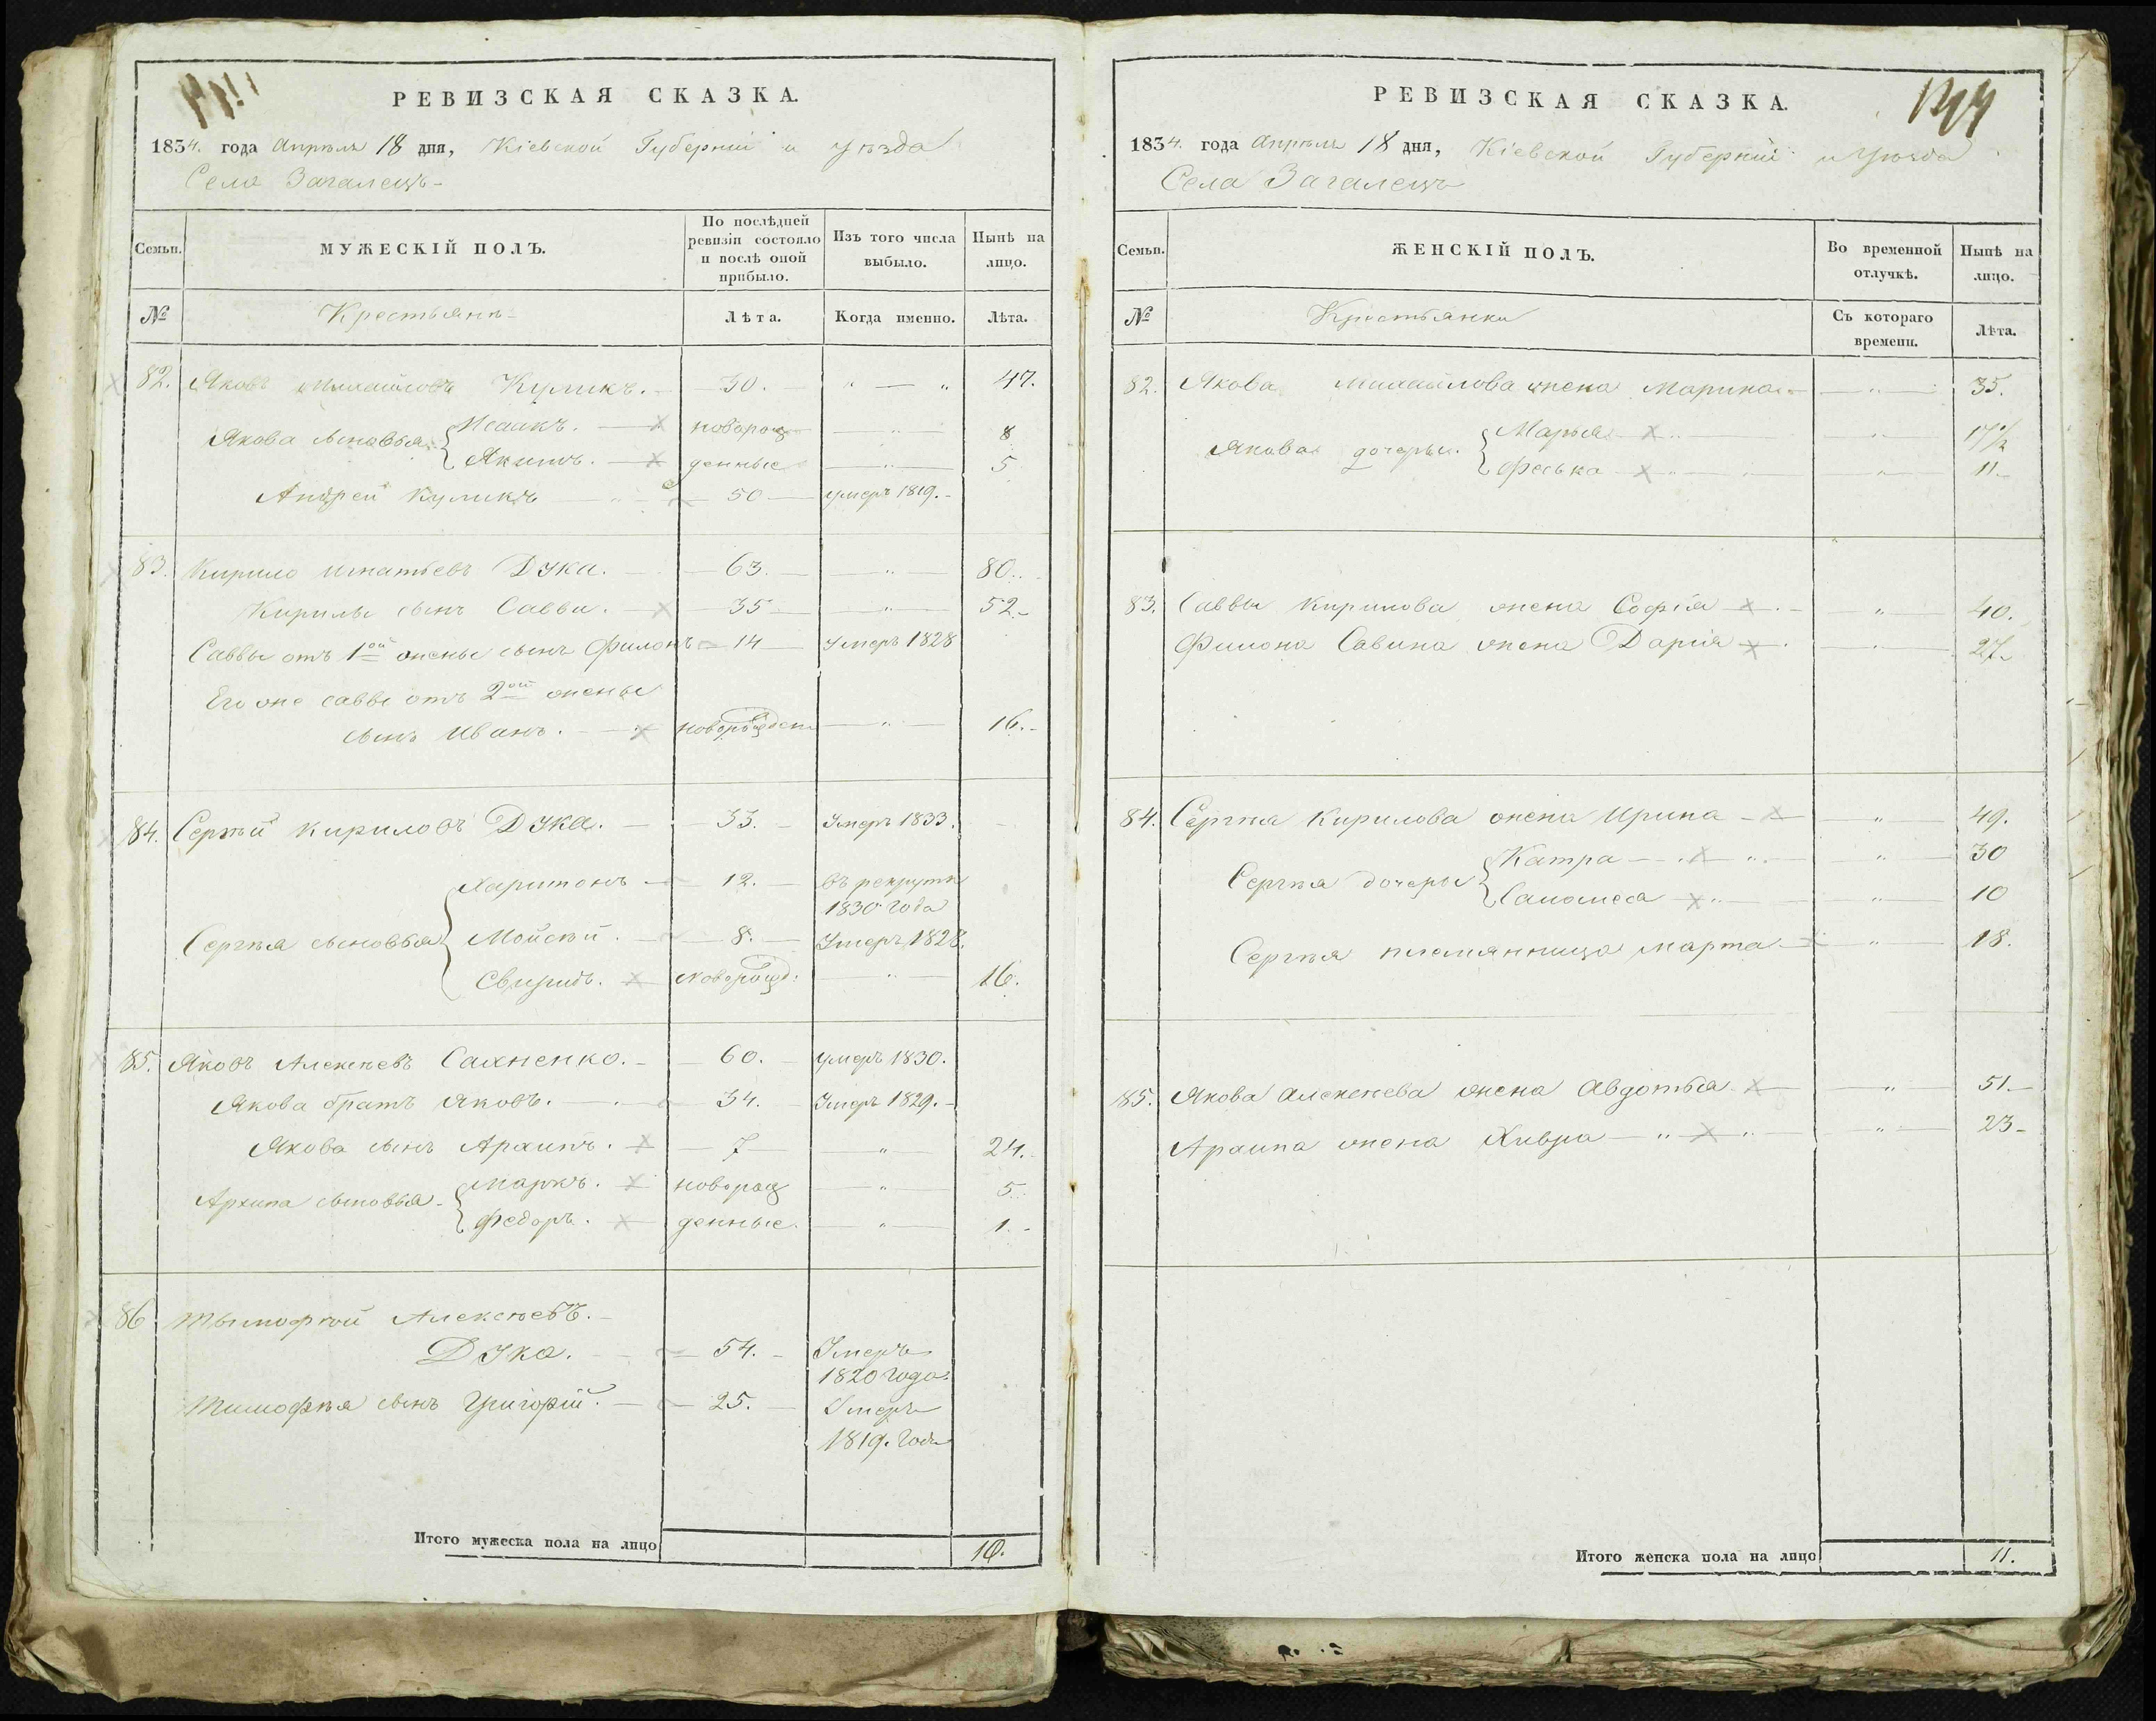 РЕВИЗСКАЯ СКАЗКА.
1834. года Апрѣля 18 дня, Кіевской Губерніи и уѣзда
Села Загалецъ
Семьи. МУЖЕСКІЙ ПОЛЪ. По послѣдней ревизіи состояло и послѣ оной прибыло. Изъ того числа выбыло. Нынѣ на лицо.
№ Крестьянъ Лѣта. Когда именно. Лѣта.
82. Яковъ Михайловъ Куликъ. 30. " — " 47.
Якова сыновья Исаакъ. новорож " 8
Якимъ. денные " 5
Андрей Куликъ 50 умеръ 1819.
83. Кирило Игнатьевъ Дука. 63. " 80.
Кирилы сынъ Савва. 35 " 52.
Саввы отъ 1ой жены сынъ Филонъ 14 Умеръ 1828
Его же саввы отъ 2ой жены
сынъ Иванъ. новорожден " 16.
84. Сергѣй Кириловъ Дука. 33. Умеръ 1833.
Харитонъ 12. въ рекруты
1830 года
Сергѣя сыновья Мойсѣй. 8. Умеръ 1828.
Свиридъ. новорожд: " 16.
85. Яковъ Алексѣевъ Сахненко. 60. умеръ 1830.
Якова братъ Яковъ. 34. Умеръ 1829.
Якова сынъ Архипъ. 7 " 24.
Архипа сыновья Маркъ. новорож " 5.
Федоръ. денные. " 1.
86 Тымофѣй Алексѣевъ.
Дука. 54. Умеръ
1820 года.
Тимофѣя сынъ Григорій. 25. Умеръ
1819. года
Итого мужеска пола на лицо 10.
РЕВИЗСКАЯ СКАЗКА.
1834. года Апрѣля 18 дня, Кіевской Губерніи и Уѣзда
Села Загалецъ
Семьи. ЖЕНСКІЙ ПОЛЪ. Во временной отлучкѣ. Нынѣ на лицо.
№ Крестьянки Съ котораго времени. Лѣта.
82. Якова Михайлова жена Марина " 35.
Якова дочеры. Марья " 17½
Феська " 11.
83. Саввы Кирилова жена Софія " 40.
Филона Савина жена Дарія " 27
84. Сергѣя Кирилова жена Ирина " 49.
Сергѣя дочеры Катра " 30
Саломея " 10
Сергѣя племянница Марта " 18.
85. Якова Алексѣева жена Авдотья " 51.
Архипа жена Хивря " 23
Итого женска пола на лицо 11.